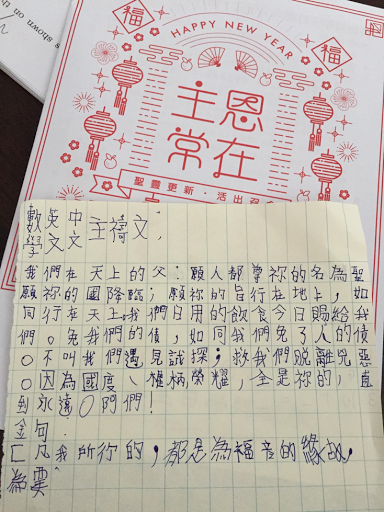 shown on
福 福
HAPPY NEW YEAR
主恩
常在
聖靈更新·活出
數英中
學文文主禱文:
我們在天上的父:願人都尊祢的名為聖
願祢的國降臨;願祢的旨行在地上,如
同行在天上。我們日用的飲食今日賜給我
們。免我們的債,如同我們免了人的債
○不叫我們遇見試探;救我們脫離兇惡
○因為國度、權柄榮耀,全是祢的,直
到永遠○阿們!
金句:
凡我所行的,都是為福音的緣故,
為要